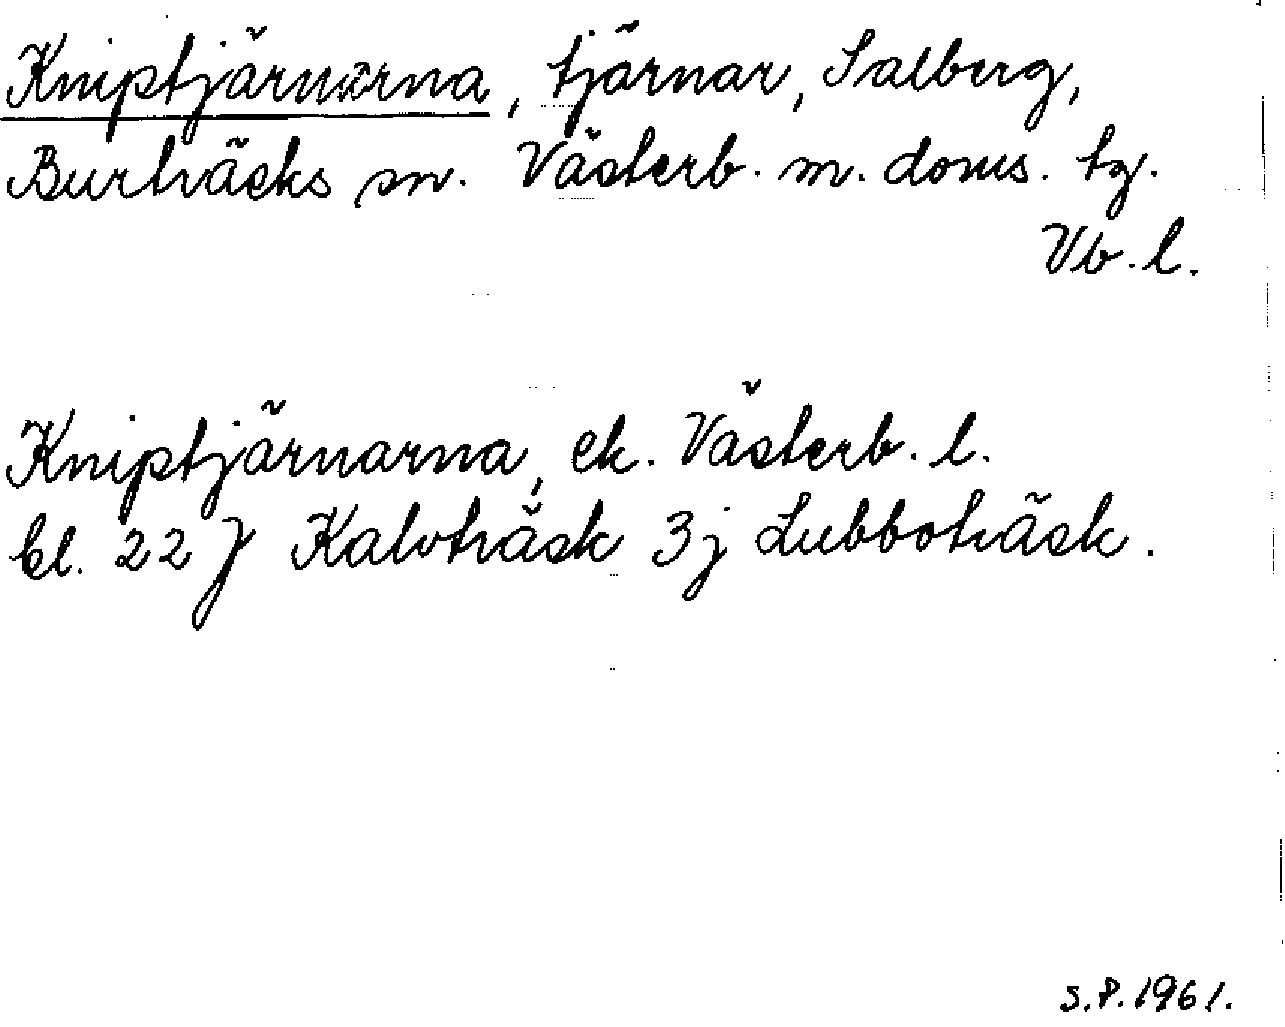 Kniptjärnarna, tjärnar, Salberg,
Burträsks sn. Västerb. m. doms. tg.
Vb. l.
Kniptjärnarna, ek. Västerb. l.
bl. 22 J Kalvträsk 3j Lubboträsk.
S.P. 1961.